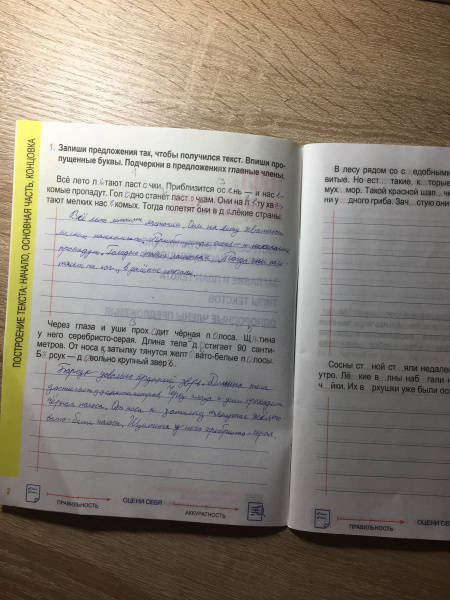 ПОСТРОЕНИЕ ТЕКСТА: НАЧАЛО, ОСНОВНАЯ ЧАСТЬ, КОНЦОВКА
1. Запиши предложения так, чтобы получился текст. Впиши про-
пущенные буквы. Подчеркни в предложениях главные члены.
Всё лето л тают ласт чки. Приблизится ос нь — и нас
комые пропадут. Гол дно станет ласт чкам. Они на л ту хва
тают мелких нас комых. Тогда полетят они в далёкие страны
Всё лето летают ласточки. Они на лету хватают
мелких насекомых.
пропадут. Голодно станет ласточкам. Тогда они
Через глаза и уши прох дит чёрная п лоса. Щ тина
у него серебристо-серая. Длина тела д стигает 90 санти-
метров. От носа к затылку тянутся желт вато-белые п лосы.
Б рсук — д вольно крупный звер .
Барсук довольно крупный зверь. Длина тела
достигает
чёрная полоса. От носа к затылку тянутся
полоса. Щетина у него серебристо-серая.
2
ПРАВИЛЬНОСТЬ
ОЦЕНИ СЕБЯ
АККУРАТНОСТЬ
В лесу рядом со с...едобными
витые. Но ест... такие, к...торые
мух...мор. Такой красной шап...ч
ни у ...дного гриба. Зач...стую они
Сосны ст...ной ст...яли недалек
утро. Лё...кие в...лны наб...гали н
ч...йки. Их в...рхушки уже были осв
ПРАВИЛЬНОСТЬ
ОЦЕНИ СЕ